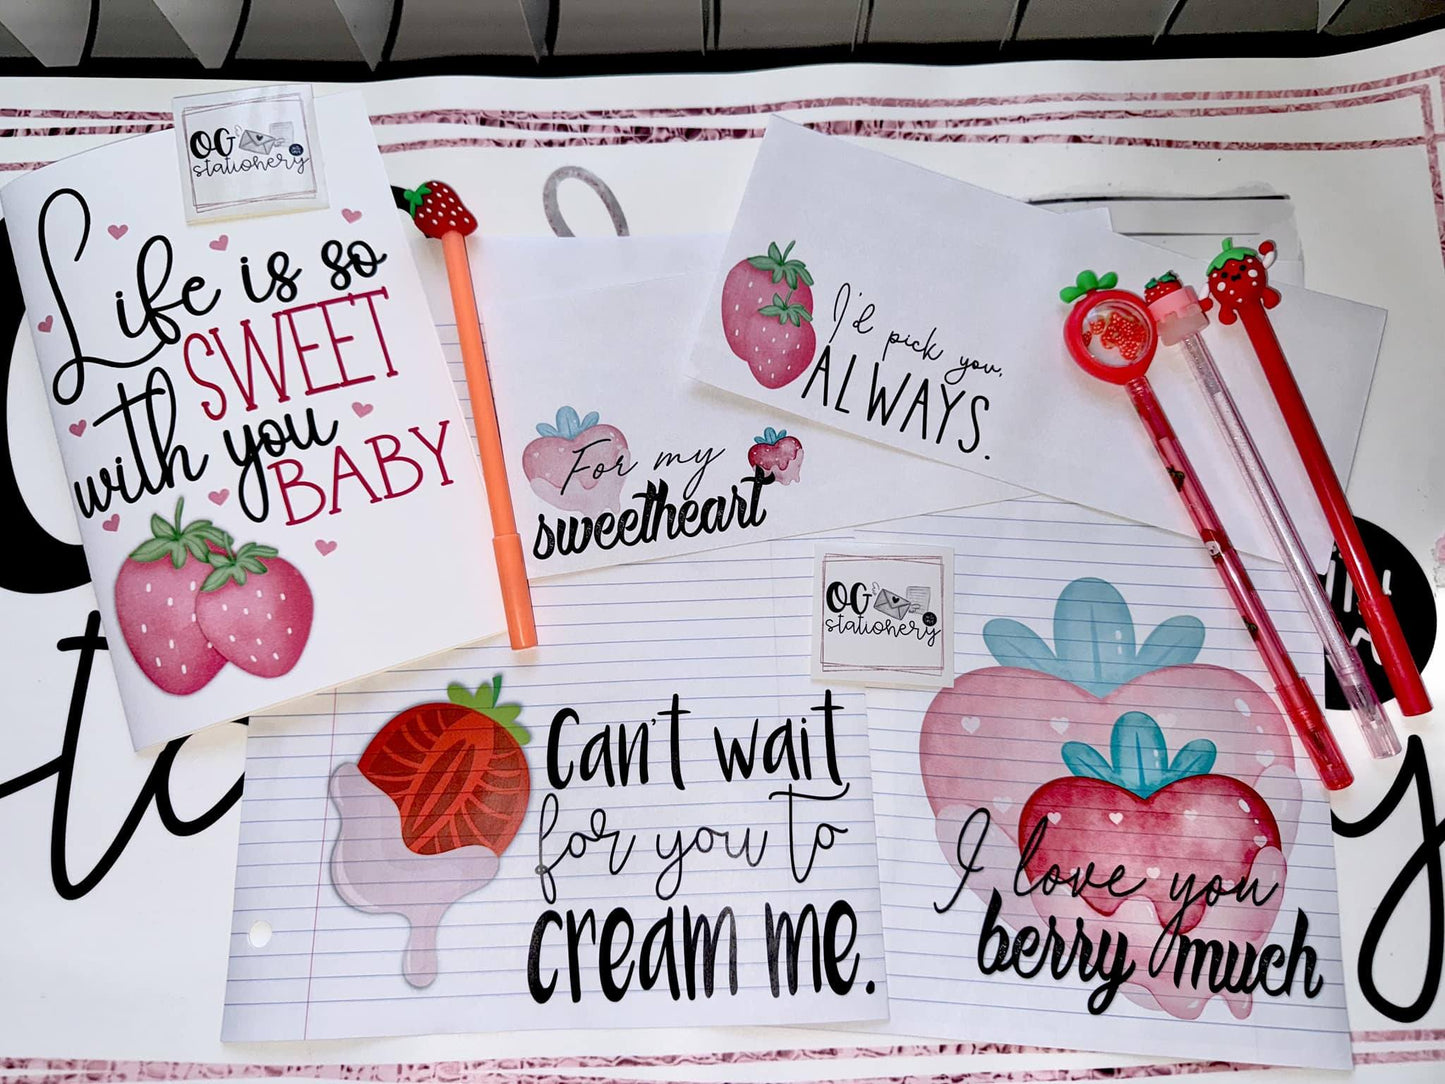 OG
stationery
Life is so
SWEET
with you
BABY
I'd pick you,
ALWAYS.
For my
sweetheart
OG
stationery
Can't wait
for you to
cream me.
I love you
berry much